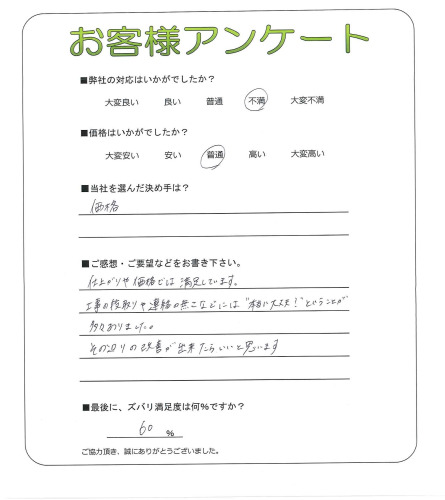 お客様アンケート
■弊社の対応はいかがでしたか？
大変良い　良い　普通　不満　大変不満
■価格はいかがでしたか？
大変安い　安い　普通　高い　大変高い
■当社を選んだ決め手は？
価格
■ご感想・ご要望などをお書き下さい。
仕上がりや価格では満足しています。
工事の段取りや連絡の無さなどには"本当に大丈夫？"ということが
多々ありました。
その辺りの改善が出来たらいいと思います
■最後に、ズバリ満足度は何%ですか？
60 %
ご協力頂き、誠にありがとうございました。